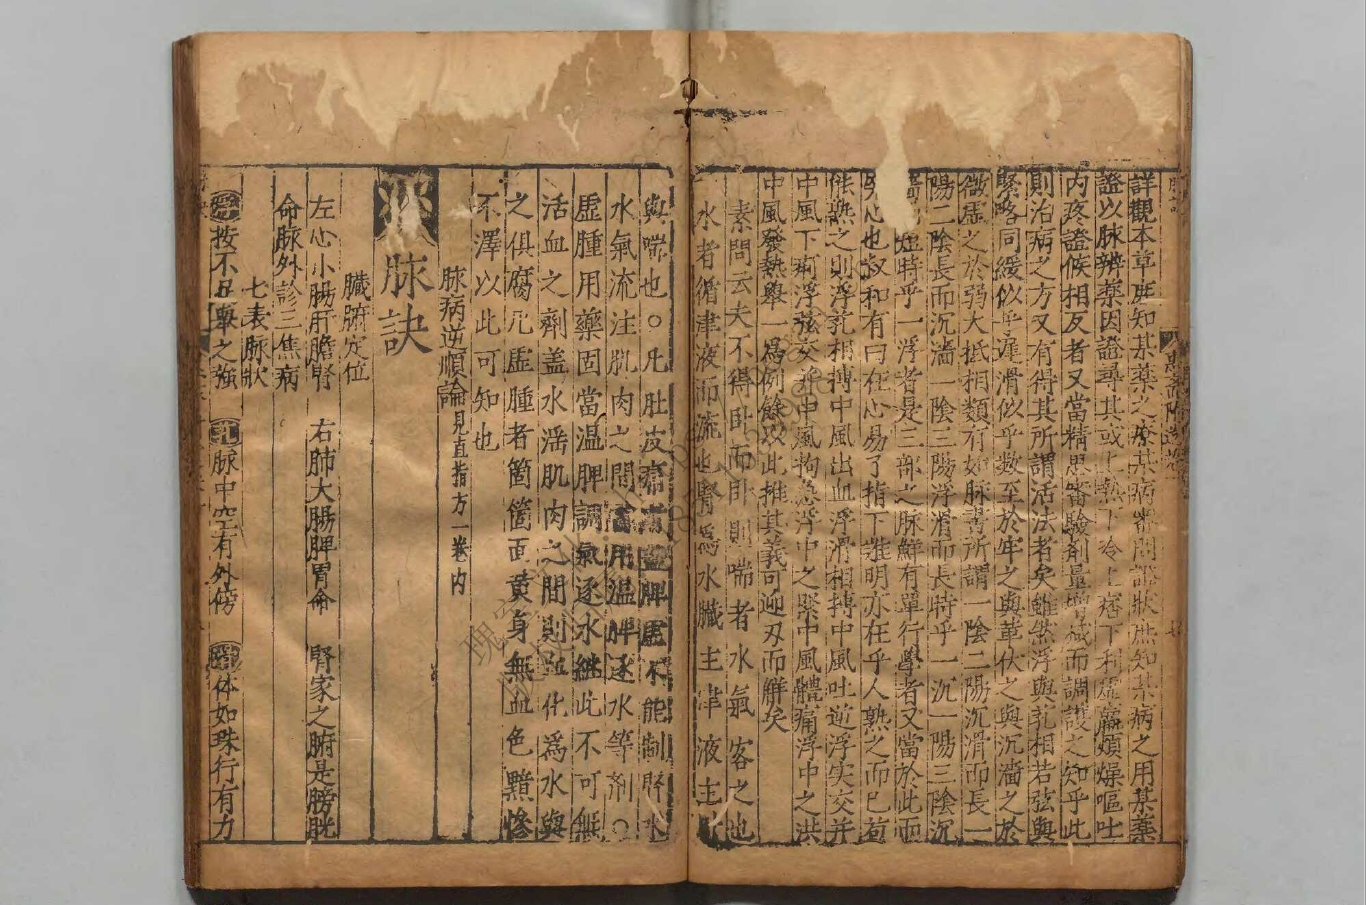 詳觀本草旣知某藥之療某病審問證狀庶知某病之用某藥
證以脉辨藥因證尋其或上熱下冷上痞下利虛羸煩燥嘔吐
内疼證候相反者又當精思審驗劑量增減而調護之知乎此
則治病之方又有得其所謂活法者矣雖然浮與芤相若弦與
緊略同緩似乎遲滑似乎數至於牢之與革伏之與沉濇之於
微虛之於弱大抵相類有如脉書所謂一陰二陽沉滑而長一
陽二陰長而沉濇一陰三陽浮滑而長特乎一沉一陽三陰沉
濇 短特乎一浮者是三部之脉鮮有單行學者又當於此而
究心也叔和有曰在心易了指下難明亦在乎人熟之而已苟
能熟之則浮芤相搏中風出血浮滑相搏中風吐逆浮实交并
中風下痢浮弦交并中風拘急浮中之緊中風體痛浮中之洪
中風發熱舉一爲例餘以此推其義可迎刃而解矣
素問云夫不得卧而卧則喘者水氣客之也
水者循津液而流也腎爲水臟主津液主卧
與喘也○凡肚皮 脾虛不能制腎水
水氣流注肌肉之間 用温脾逐水等剂○
虛腫用藥固當温脾調氣逐水継此不可無
活血之劑盖水滛肌肉之間則血化爲水與
之俱腐凡虛腫者箇箇面黄身無血色黯慘
不澤以此可知也
脉病逆順論見直指方一卷内
脉訣
臓腑定位
左心小腸肝膽腎 右肺大腸脾胃命 腎家之腑是膀胱
命脉外診三焦病
七表脉狀
按不足舉之強 芤脉中空有外傍 体如珠行有力